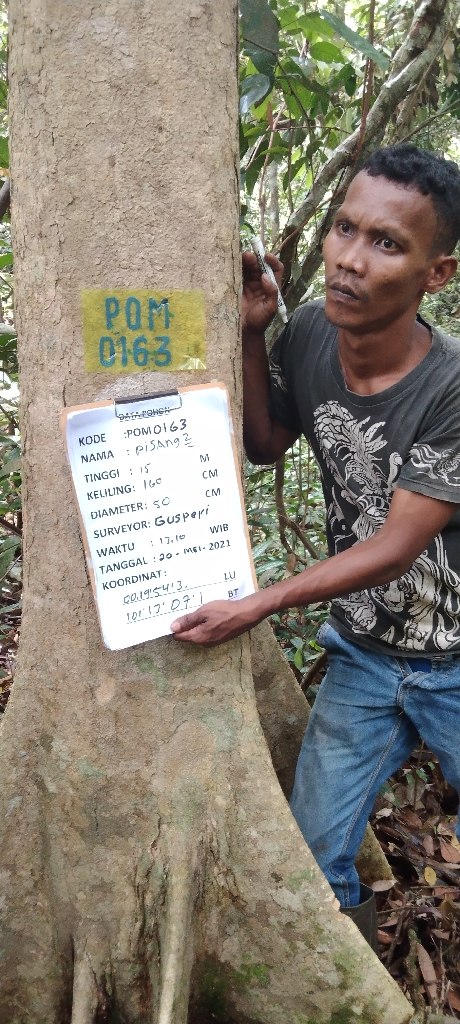 POM
0163
DATA POHON
KODE :POM0163
NAMA : Pisang2
TINGGI : 15 M
KELILING: 160 CM
DIAMETER: 50 CM
SURVEYOR: Guspepi
WAKTU : 13.10 WIB
TANGGAL : 20 - MEI - 2021
KOORDINAT:
00.19'54'3. LU
101'13'07'1 BT